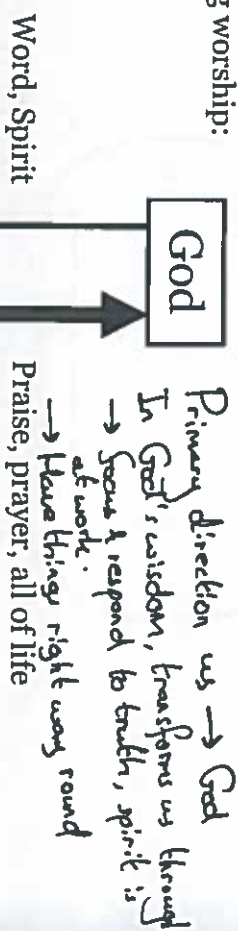 g worship:
God
Primary direction us → God
In God's wisdom, transforms us through
→ focus & respond to truth, spirit is
at work.
→ Have things right way round
Word, Spirit
Praise, prayer, all of life